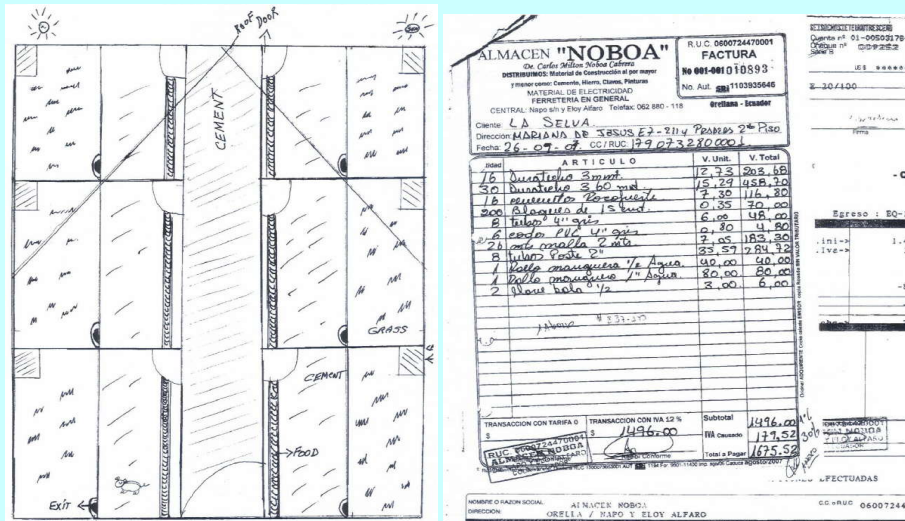 ROOF DOOR
CEMENT
GRASS
CEMENT
FOOD
EXIT
ALMACEN "NOBOA"
De. Carlos Milton Noboa Cabrera
DISTRIBUIMOS: Material de Construcción al por mayor
y menor como: Cemento, Hierro, Clavos, Pinturas
MATERIAL DE ELECTRICIDAD
FERRETERIA EN GENERAL
CENTRAL: Napo s/n y Eloy Alfaro Telefax: 062 880 - 118
R.U.C. 0600724470001
FACTURA
No 001-001 010893
No. Aut. SRI 1103935645
Orellana - Ecuador
Cliente: LA SELVA.
Dirección: MARIANA DE JESUS E7-211 y PRADERA 2do Piso
Fecha: 26-09-07 CC/RUC: 1790732800001
ARTICULO V. Unit. V. Total
16 Duratecho 3mmt. 12,73 203,68
30 Duratecho 3.60 15,29 458,70
16 cementos Rocafuerte 7.30 116,80
200 Bloques de 15 0.35 70,00
8 tubos 4" gris 6,00 48,00
6 codos PVC 4" gris 0,80 4,80
26 mts malla 2 mts. 7,05 183,30
8 tubos Poste 2" 35,59 284,72
1 Rollo manguera 1/2 Agua. 40,00 40,00
1 Rollo manguera 1" Agua. 80,00 80,00
2 llave bola 1/2 3,00 6,00
TRANSACCION CON TARIFA 0
$
TRANSACCION CON IVA 12 %
$ 1496.00
Subtotal 1496.00
IVA Causado 179,52
Total a Pagar 1675.52
RUC. 0600724470001
ALMACEN NOBOA
Recibi Conforme
NOMBRE O RAZON SOCIAL: ALMACEN NOBOA
DIRECCION: ORELLA / NAPO Y ELOY ALFARO
Cuenta nº 01-00503178
Cheque nº
US$
20/100
Firma
Egreso : EQ-
EFECTUADAS
C.C. o RUC 06007244